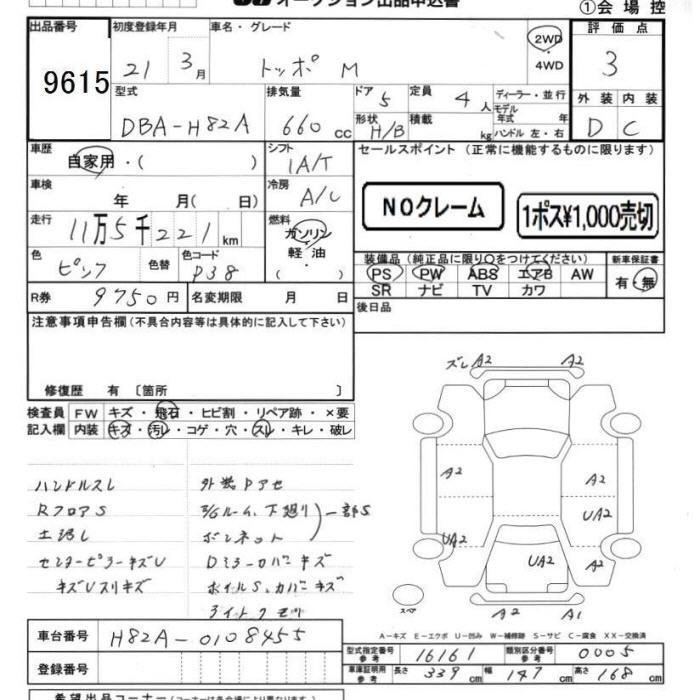 オークション出品申込書
①会場控
出品番号
9615
初度登録年月
21 3月
車名・グレード
トッポ M
2WD
・
4WD
評価点
3
型式
DBA-H82A
排気量
660 cc
ドア 5
定員 4 人
形状 H/B
積載 kg
ディーラー・並行
モデル年式 年
ハンドル 左・右
外装 内装
D C
車歴
自家用・( )
シフト
IA/T
セールスポイント (正常に機能するものに限ります)
NOクレーム
1ポス¥1,000売切
車検
年 月( 日)
冷房
A/C
走行
11万5千221km
燃料
ガソリン
軽油
( )
色
ピンク
色替
色コード
P38
装備品 (純正品に限り○をつけてください)
PS PW ABS エアB AW
SR ナビ TV カワ
新車保証書
有・無
R券 9750円
名変期限 月 日
後日品
注意事項申告欄(不具合内容等は具体的に記入して下さい)
修復歴 有 〔箇所 〕
検査員記入欄
FW キズ・飛石・ヒビ割・リペア跡・×要
内装 キズ・汚レ・コゲ・穴・スレ・キレ・破レ
ハンドルスレ
RフロアS
土汚レ
センターピラーキズU
キズUスリキズ
外装Pアセ
E/Gルーム、下廻り
ボンネット
一部S
Dミラーカバーキズ
ホイルS、カバーキズ
ライトクモリ
ズレ A2 A2
A2 A2
UA2
UA2
UA2 A2
スペア
A2 A1
A-キズ E-エクボ U-凹み W-補修跡 S-サビ C-腐食 XX-交換済
車台番号
H82A-0108455
型式指定番号 参考
16161
類別区分番号 参考
0005
登録番号
車庫証明用 参考
長さ 339 cm
幅 147 cm
高さ 168 cm
希望出品コーナー(コーナーは各会場により異なります)